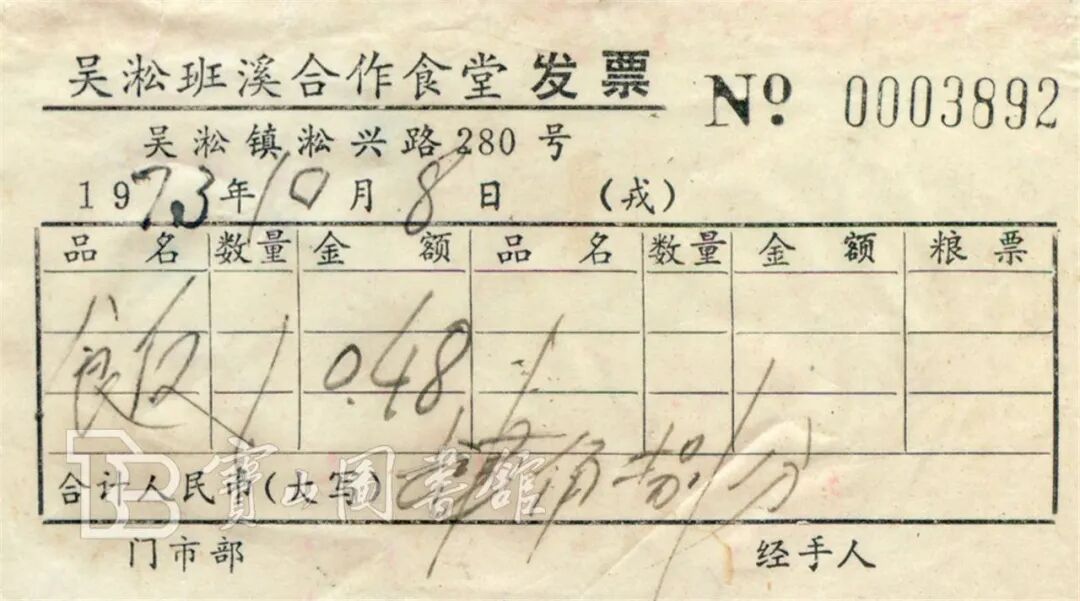 吴淞班溪合作食堂发票 № 0003892
吴淞镇淞兴路280号
1973年10月8日 (戎)
品名 数量 金额 品名 数量 金额 粮票
饭 1 0.48
合计人民币(大写) 肆角捌分
宝山图书馆
门市部 经手人